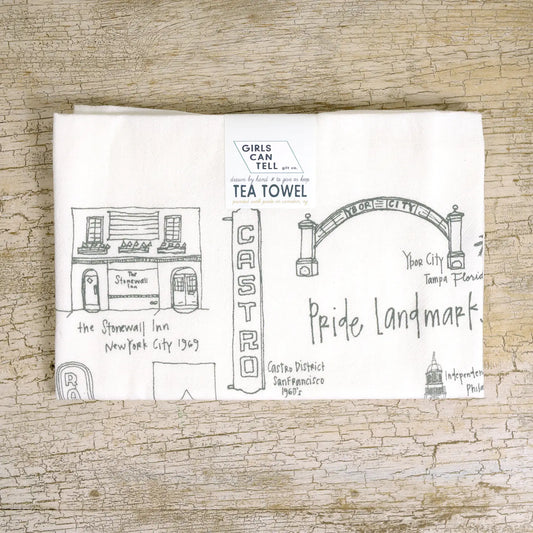 GIRLS
CAN
TELL
gift co.
drawn by hand & to give or keep
TEA TOWEL
printed with pride in camden, nj
YBOR CITY
CASTRO
The
Stonewall
Inn
Ybor City
Tampa Florida
the Stonewall Inn
New York City 1969
Pride Landmark
Castro District
San Francisco
1960's
Independen
Phila
RA